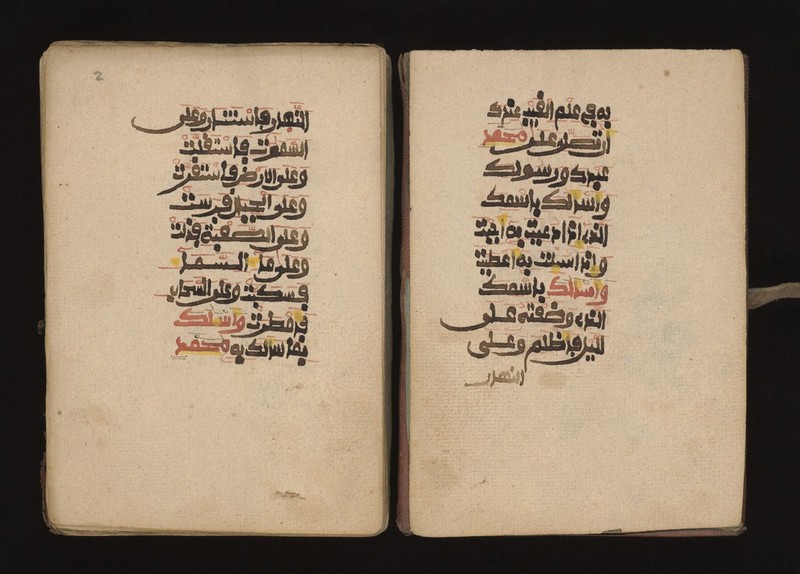 به في علم الغيب عندك
ان تصل على محمد
عبدك ورسولك
واسلك باسمك
الذي اذا دعيت به اجبت
واذا سئلت به اعطيت
واسلك باسمك
الذي وضعته على
اليل فاظلم وعلى
النهار
2
النهار فاستنار وعلى
السموت فاستقلت
وعلى الارض فاستقرت
وعلى الجبال فرست
وعلى الصعبة فذلت
وعلى ماء السماء
فسكبت وعلى السحاب
فامطرت واسلك
بما سالك به محمد